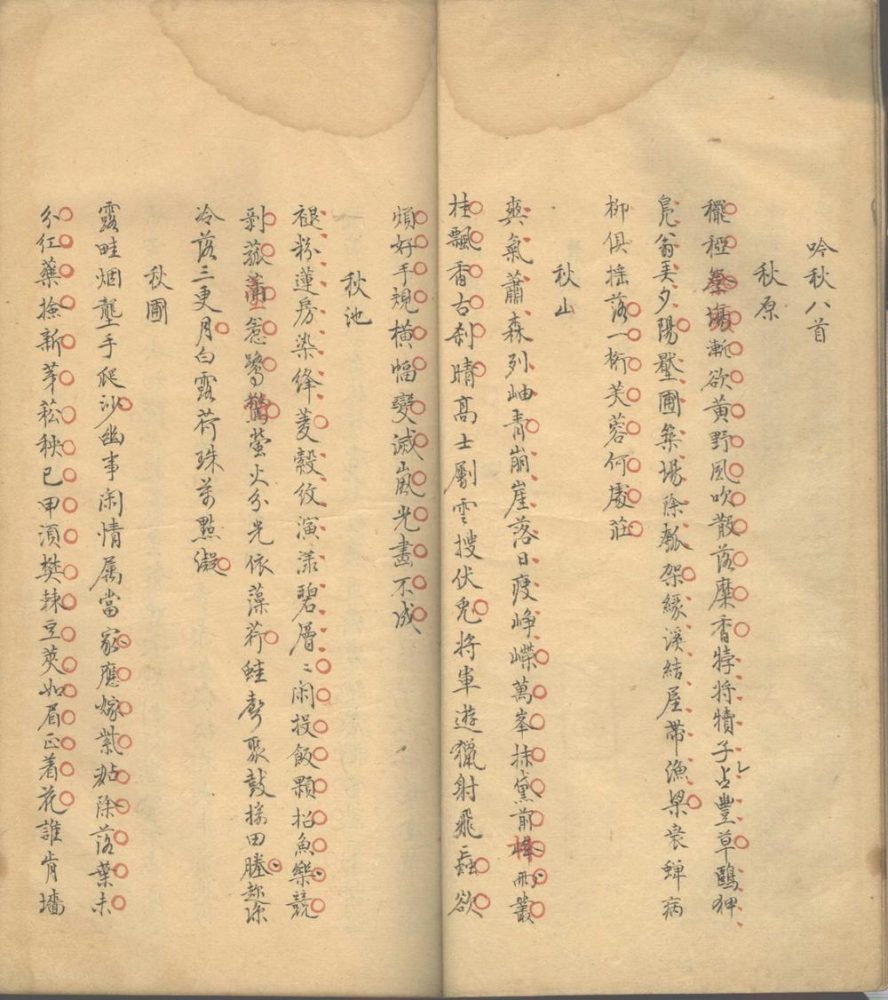 吟秋八首
秋原
䆉稏登場漸欲黃野風吹散落麋香牸將犢子占豐草鷗狎
鳧翁弄夕陽墾圃築場除瓠架緣溪結屋帶漁梁衰蟬病
柳俱搖落一桁芙蓉何處莊
秋山
爽氣蕭森列岫青崩崖落日瘦崢嶸萬峯抹黛前峰叢
桂飄香古刹晴高士劚雲搜伏兔將軍遊獵射飛欲
煩好手規橫幅變滅嵐光畫不成
秋池
褪粉蓮房染絳菱縠紋演漾碧層〻閑投飯顆招魚樂競
剝菰蒲惹鷺驚螢火分光依藻荇蛙聲聚鼓接田塍
冷落三更月白露荷珠萬點凝
秋圃
露畦烟壟手爬沙幽事閑情屬當家應嫁紫茄除落葉未
分紅藥撿新芽菘秧已甲須樊棘豆莢如眉正着花誰肯墻